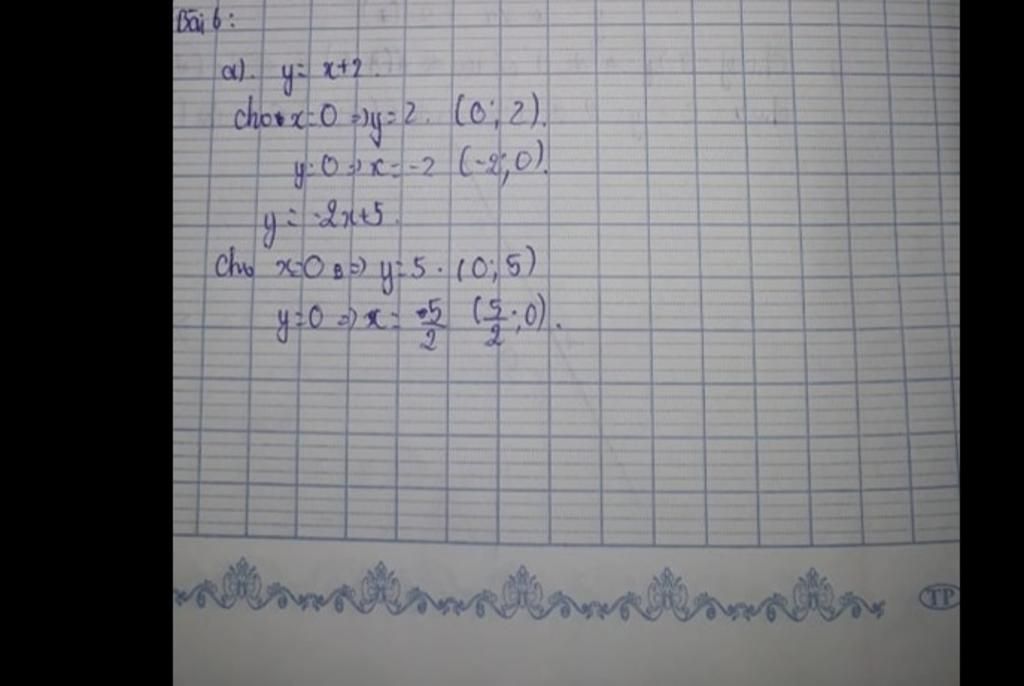 Bài 6:
a). y = x+2
Cho x=0 => y=2. (0; 2).
y=0 => x=-2 (-2; 0).
y = -2x+5.
Cho x=0 => y=5. (0; 5)
y=0 => x= 5/2 (5/2; 0).
TP